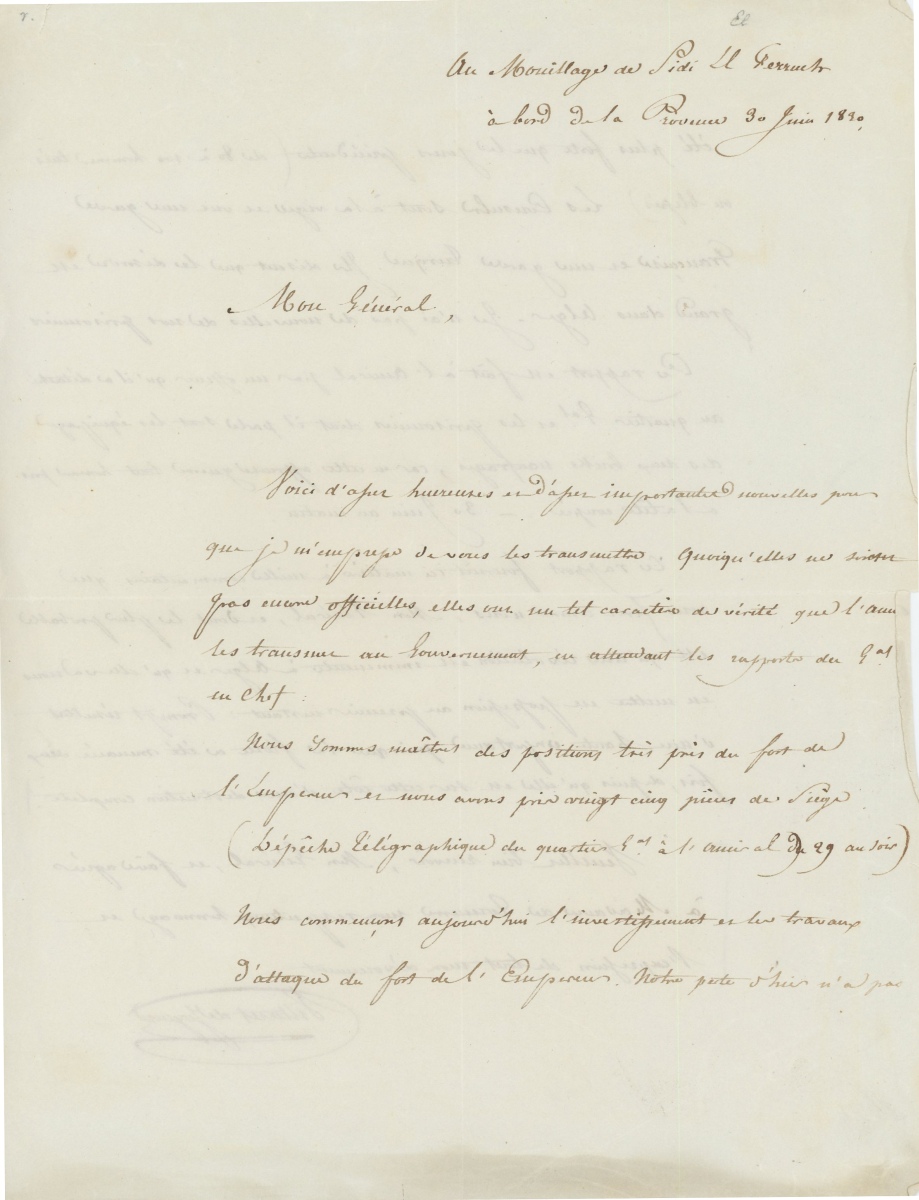 Au Mouillage de Sidi El Ferruch
à bord de la Provence 30 Juin 1830,
Mon Général,
Voici d'assez heureuses et d'assez importantes nouvelles pour
que je m'empresse de vous les transmettre. Quoiqu'elles ne soient
pas encore officielles, elles ont un tel caractère de vérité que l'am
les transmet au Gouvernement, en attendant les rapports du Gal
en Chef:
Nous sommes maîtres des positions très près du fort de
l'Empereur et nous avons pris vingt cinq pièces de Siège
(Dépêche Télégraphique du quartier Gal à l'Amiral du 29 au soir)
Nous commençons aujourd'hui l'investissement et les travaux
d'attaque du fort de l'Empereur. Notre perte d'hier n'a pas